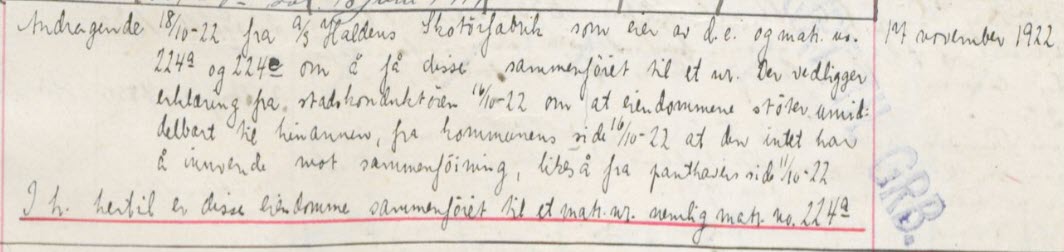 Andragende 18/10-22 fra A/S Haldens Skotöifabrik som eier av d.e. og matr. no. 17 november 1922
224a og 224e om å få disse sammenföiet til et nr. Der vedligger
erklæring fra stadskonduktören 16/10-22 om at eiendommene stöter umid-
delbart til hinannen, fra kommunens side 16/10-22 at den intet har
å innvende mot sammenföining, likeså fra panthavers side 11/10-22
I h. hertil er disse eiendomme sammenföiet til et matr. nr. nemlig matr. no. 224a
GRB.